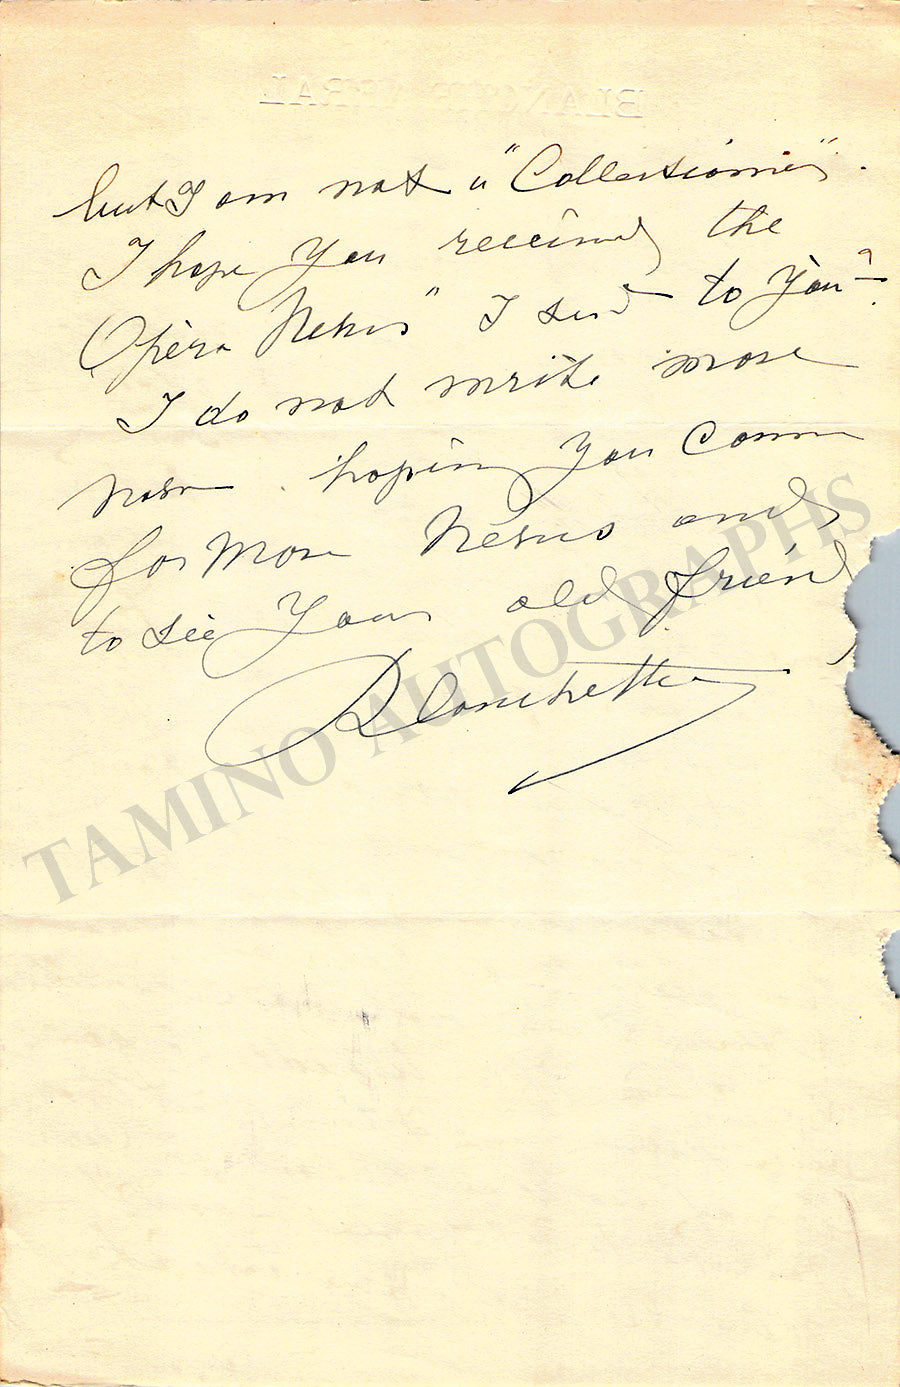 BLANCHE ARRAL
but I am not a "Collectionner".
I hope you received the
Opera News" I send to you?
I do not write more
now. hoping you comm
for more news and
to see your old friend
Blanchette
TAMINO AUTOGRAPHS